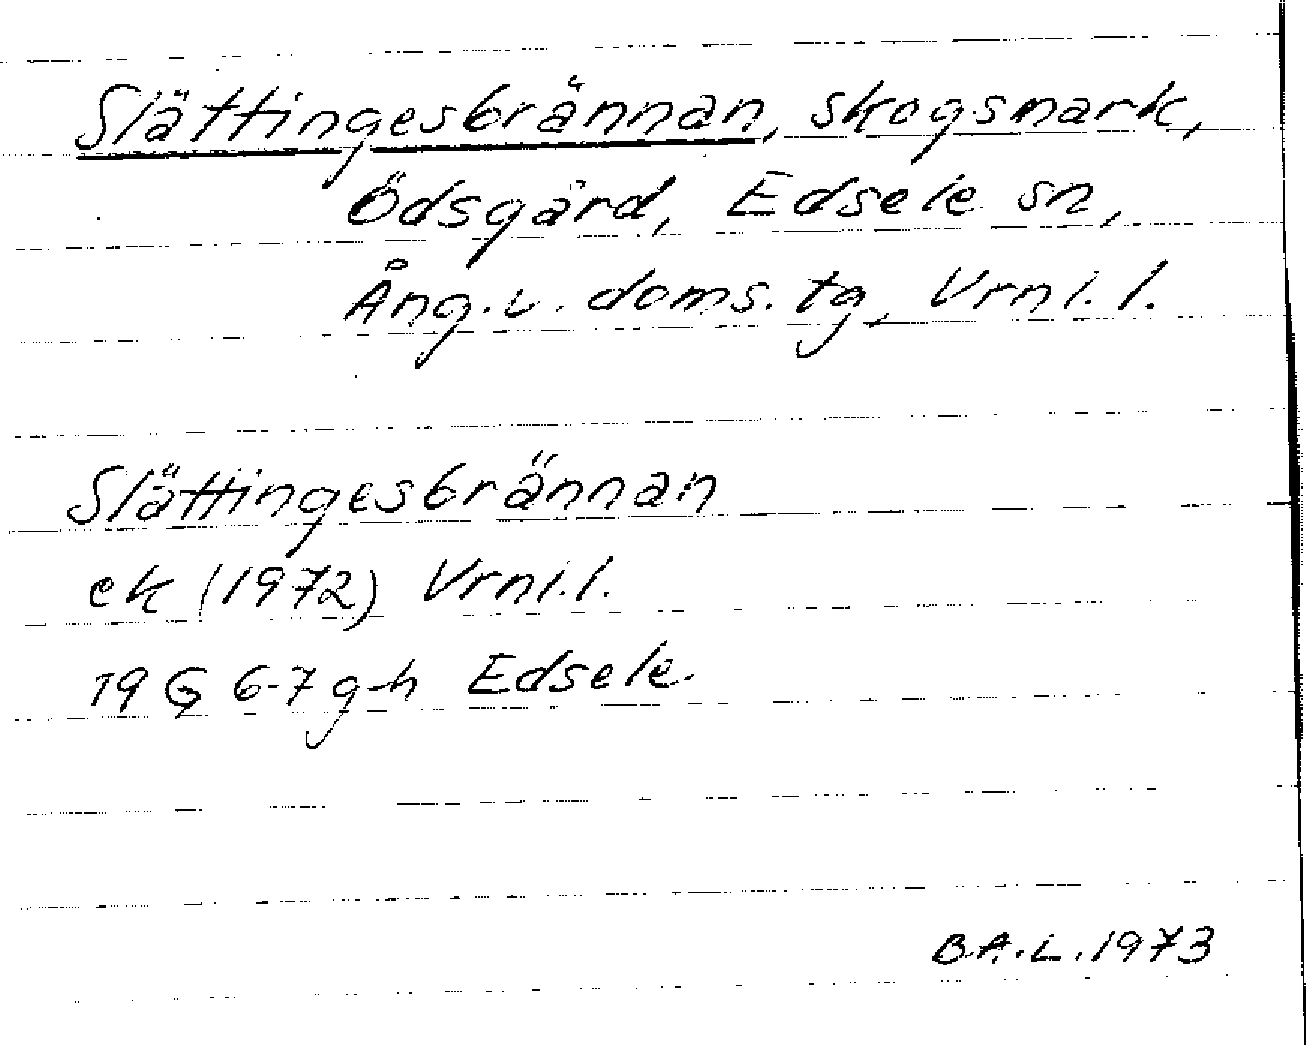 Slättingesbrännan, skogsmark,
Ödsgård, Edsele sn,
Ång. v. doms. tg, Vrnl. l.
Slättingesbrännan
ek (1972) Vrnl. l.
19 G 6-7 g-h Edsele
B.A.L. 1973